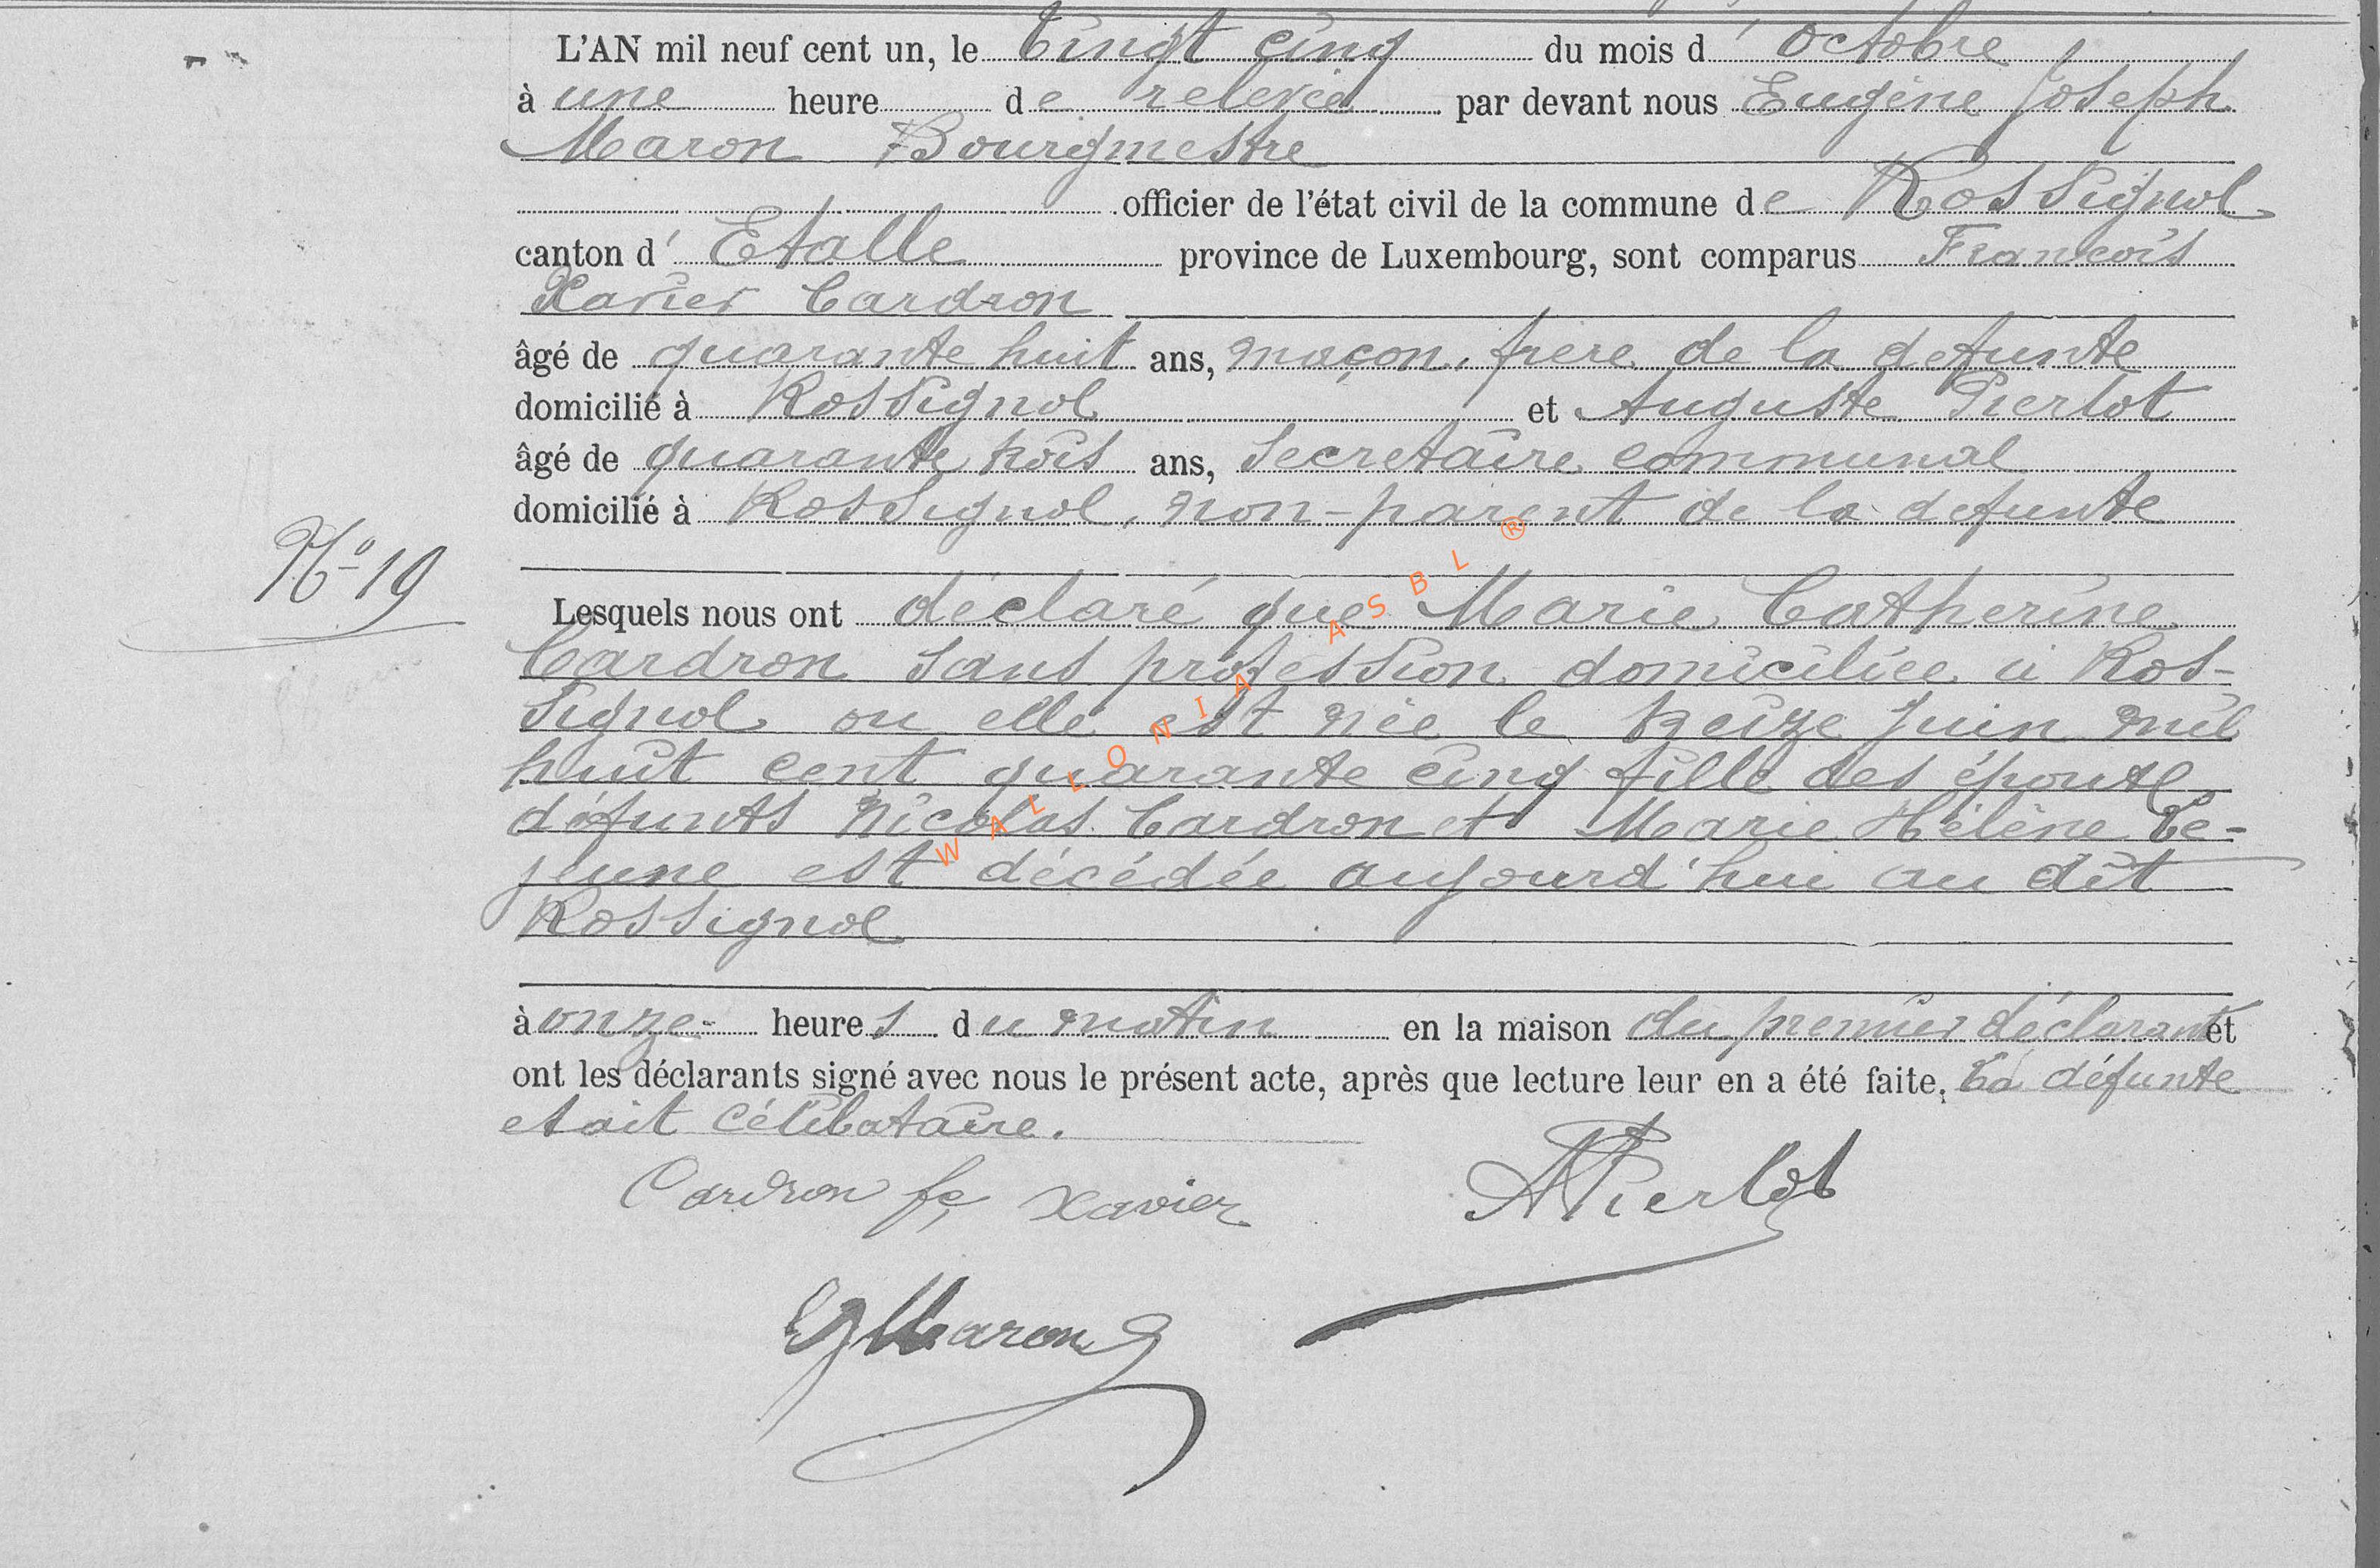 L'AN mil neuf cent un, le Vingt cinq du mois d' Octobre
à une heure de relevée par devant nous Eugène Joseph
Maron Bourgmestre
officier de l'état civil de la commune de Rossignol
canton d' Etalle province de Luxembourg, sont comparus François
Xavier Cardron
âgé de quarante huit ans, maçon, frère de la defunte
domicilié à Rossignol et Auguste Pierlot
âgé de quarante trois ans, Secretaire communal
domicilié à Rossignol, non-parent de la defunte
Nº 19
Lesquels nous ont déclaré que Marie Catherine
Cardron sans profession domiciliée à Ros-
signol ou elle est née le treize Juin mil
huit cent quarante cinq fille des époux
défunts Nicolas Cardron et Marie Hélène Le-
jeune est décédée aujourd'hui au dit
Rossignol
à onze heures du matin en la maison du premier déclarant et
ont les déclarants signé avec nous le présent acte, après que lecture leur en a été faite. La défunte
etait célibataire.
Cardron fs Xavier APierlot
EJMaron
WALLONIA ASBL ®